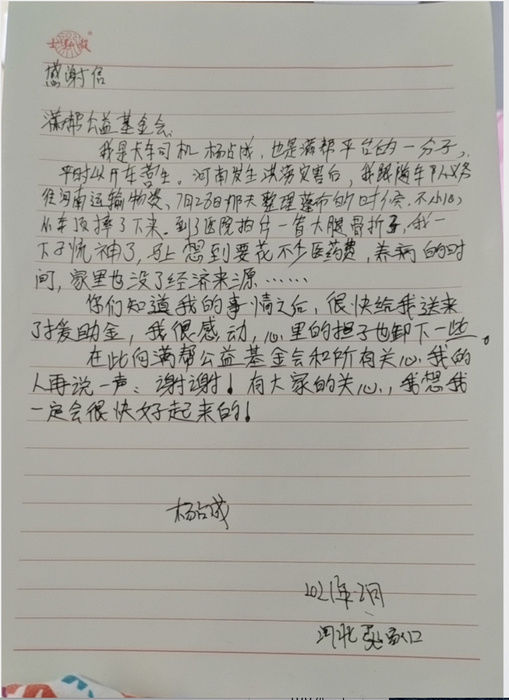 感谢信
满帮公益基金会
我是卡车司机杨占成，也是满帮平台的一分子，
平时以开车营生。河南发生洪涝灾害后，我跟随车队义务
往河南运输物资，7月28日那天整理蓬布的时候，不小心
从车顶摔了下来。到了医院拍片一看大腿骨折了，我一
下子慌神了，马上想到要花不少医药费，养病的时
间，家里也没了经济来源……
你们知道我的事情之后，很快给我送来
了援助金，我很感动，心里的担子也卸下一些。
在此向满帮公益基金会和所有关心我的
人再说一声：谢谢！有大家的关心，我想我
一定会很快好起来的！
杨占成
2021年 月
河北张家口